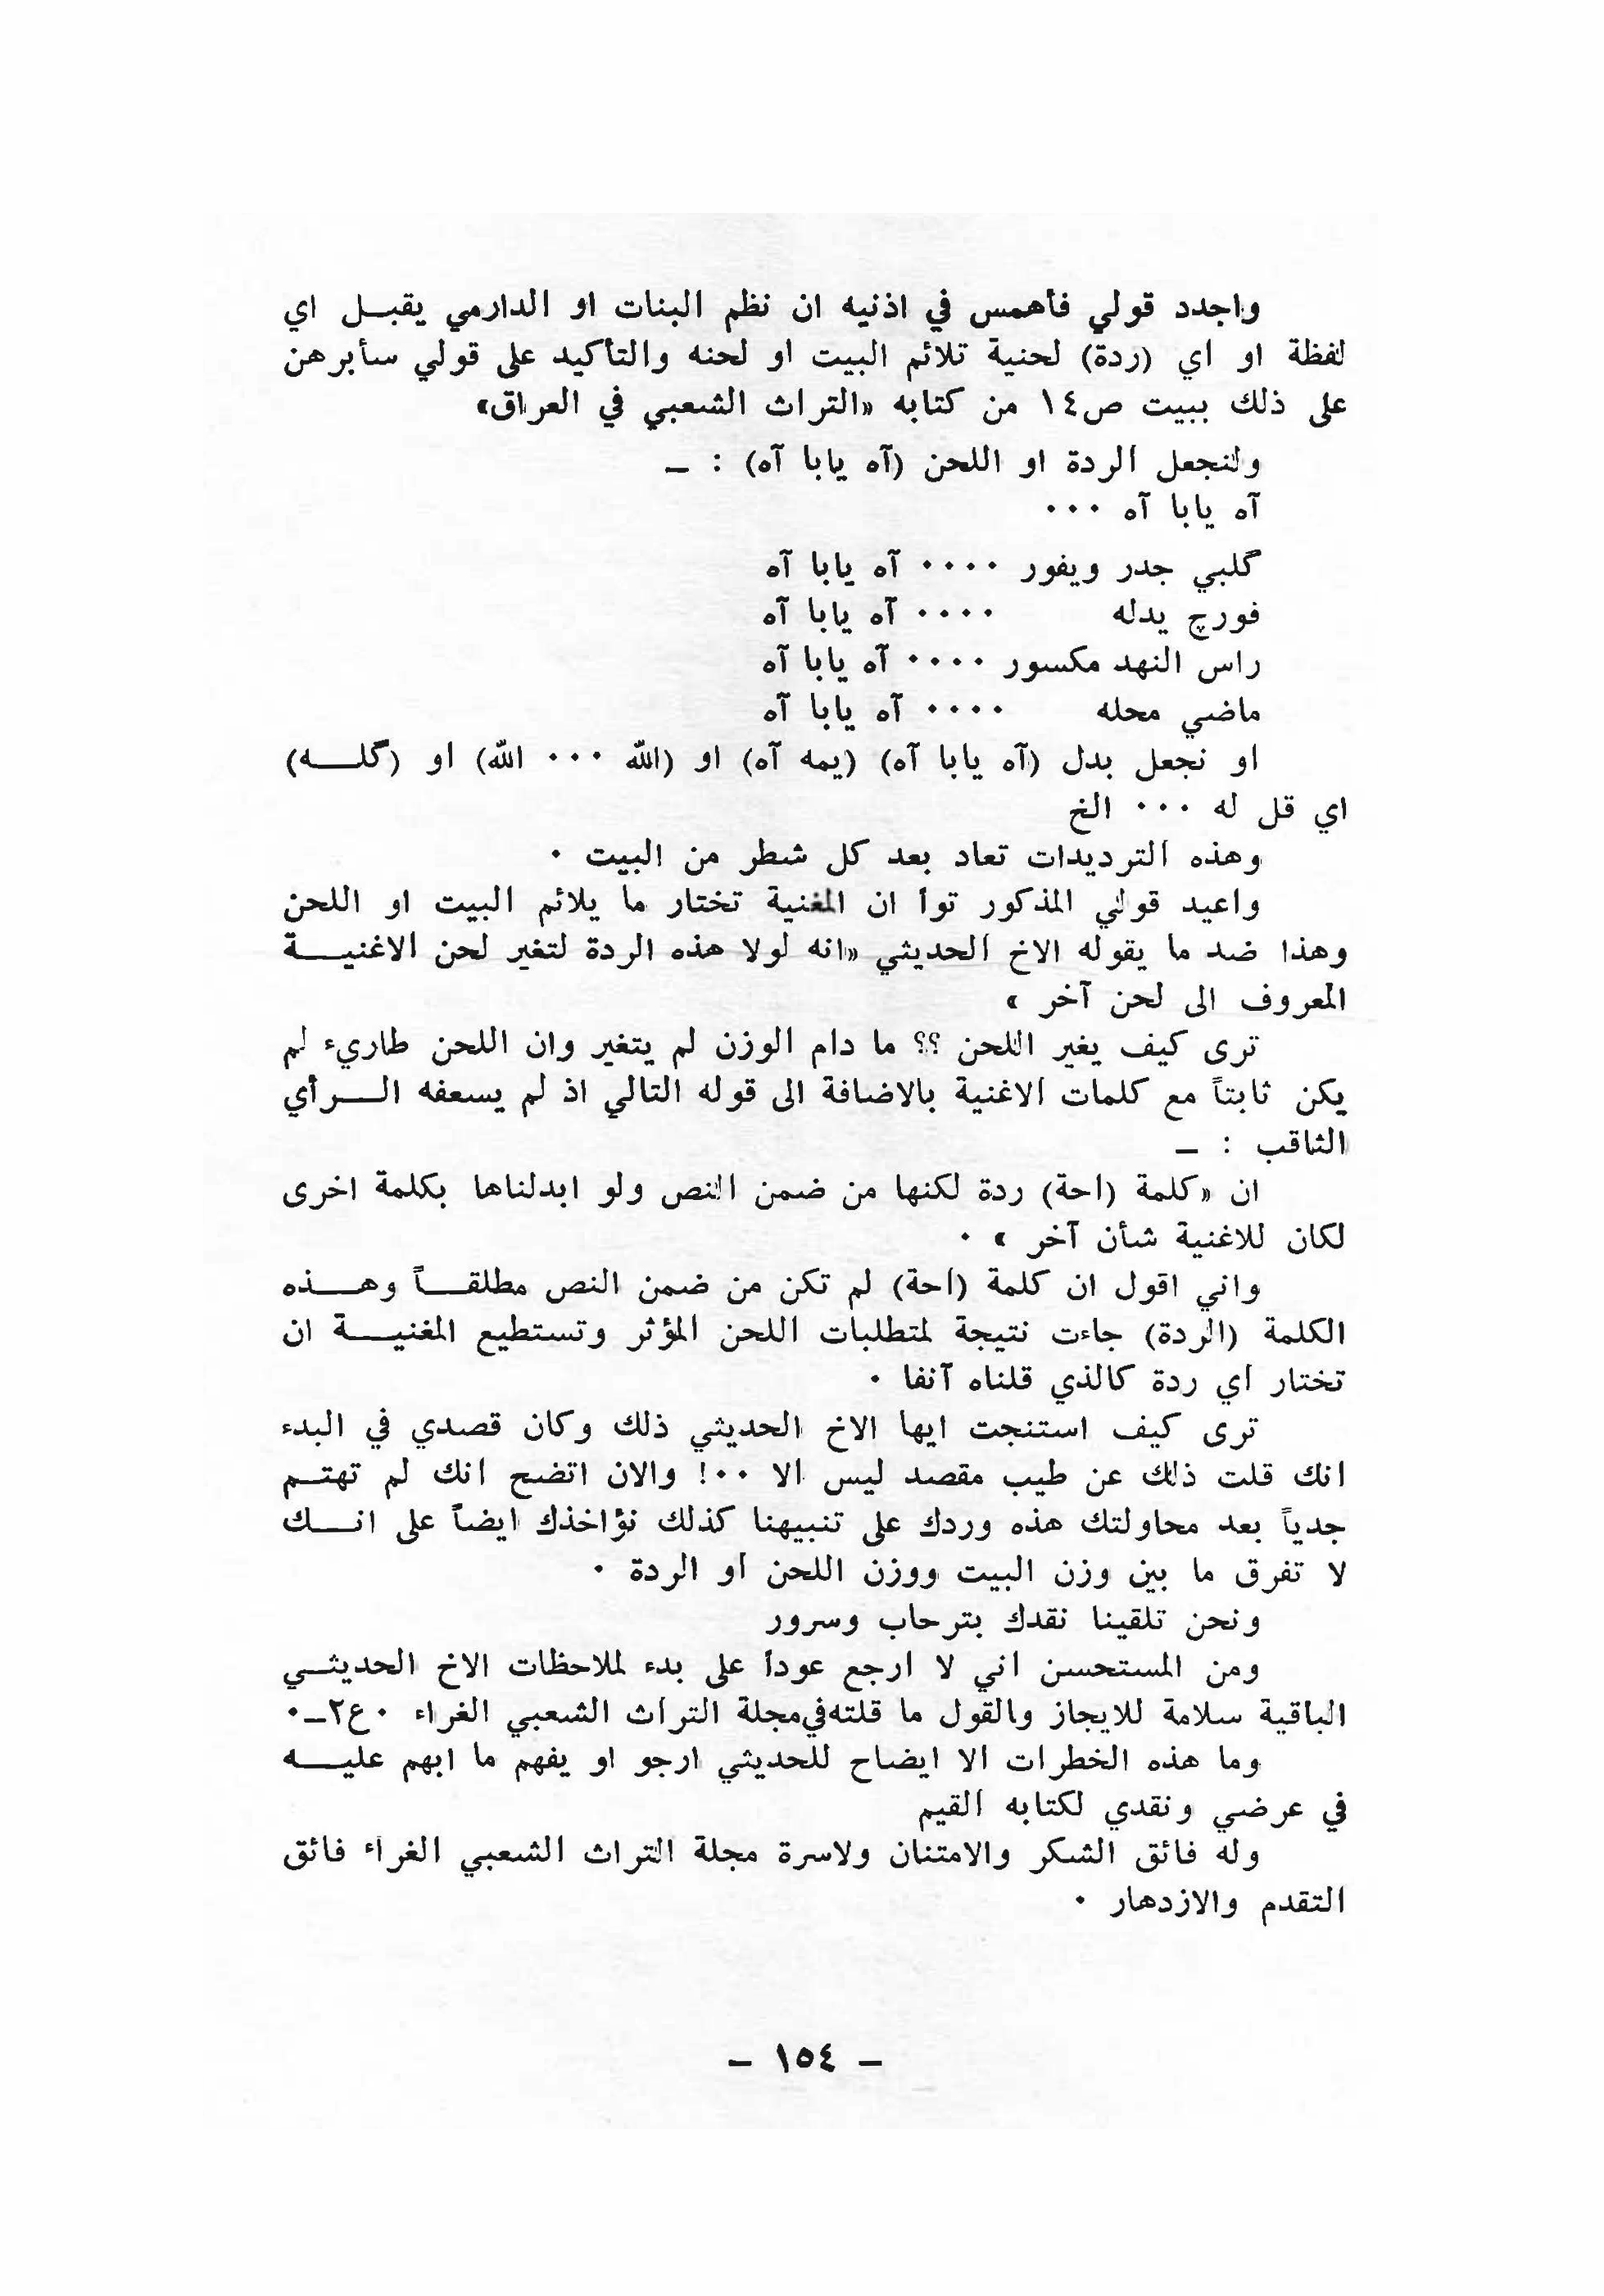 واجدد قولي فأهمس في اذنيه ان نظم البنات او الدارمي يقبـل اي
لفظة او اي (ردة) لحنية تلائم البيت او لحنه والتأكيد على قولي سأبرهن
على ذلك ببيت ص١٤ من كتابه «التراث الشعبي في العراق»
ولنجعل الردة او اللحن (آه يابا آه) : ـ
آه يابا آه ٠٠٠
گلبي جدر ويفور ٠٠٠٠ آه يابا آه
فورچ يدله ٠٠٠٠ آه يابا آه
راس النهد مكسور ٠٠٠٠ آه يابا آه
ماضي محله ٠٠٠٠ آه يابا آه
او نجعل بدل (آه يابا آه) (يمه آه) او (الله ٠٠٠ الله) او (گلـــه)
اي قل له ٠٠٠ الخ
وهذه الترديدات تعاد بعد كل شطر من البيت ٠
واعيد قولي المذكور توأ ان المغنية تختار ما يلائم البيت او اللحن
وهذا ضد ما يقوله الاخ الحديثي «انه لولا هذه الردة لتغير لحن الاغنيـــة
المعروف الى لحن آخر »
ترى كيف يغير اللحن ؟؟ ما دام الوزن لم يتغير وان اللحن طاريء لم
يكن ثابتاً مع كلمات الاغنية بالاضافة الى قوله التالي اذ لم يسعفه الـــرأي
الثاقب : ـ
ان «كلمة (احة) ردة لكنها من ضمن النص ولو ابدلناها بكلمة اخرى
لكان للاغنية شأن آخر » ٠
واني اقول ان كلمة (احة) لم تكن من ضمن النص مطلقـــاً وهـــذه
الكلمة (الردة) جاءت نتيجة لمتطلبات اللحن المؤثر وتستطيع المغنيـــة ان
تختار اي ردة كالذي قلناه آنفا ٠
ترى كيف استنجت ايها الاخ الحديثي ذلك وكان قصدي في البدء
انك قلت ذلك عن طيب مقصد ليس الا ٠٠! والان اتضح انك لم تهتــم
جدياً بعد محاولتك هذه وردك على تنبيهنا كذلك نؤاخذك ايضاً على انـــك
لا تفرق ما بين وزن البيت ووزن اللحن او الردة ٠
ونحن تلقينا نقدك بترحاب وسرور
ومن المستحسن اني لا ارجع عوداً على بدء لملاحظات الاخ الحديثــي
الباقية سلامة للايجاز والقول ما قلته في مجلة التراث الشعبي الغراء ٠ع٢ـ٠
وما هذه الخطرات الا ايضاح للحديثي ارجو او يفهم ما ابهم عليـــه
في عرضي ونقدي لكتابه القيم
وله فائق الشكر والامتنان ولاسرة مجلة التراث الشعبي الغراء فائق
التقدم والازدهار ٠
ـ ١٥٤ ـ